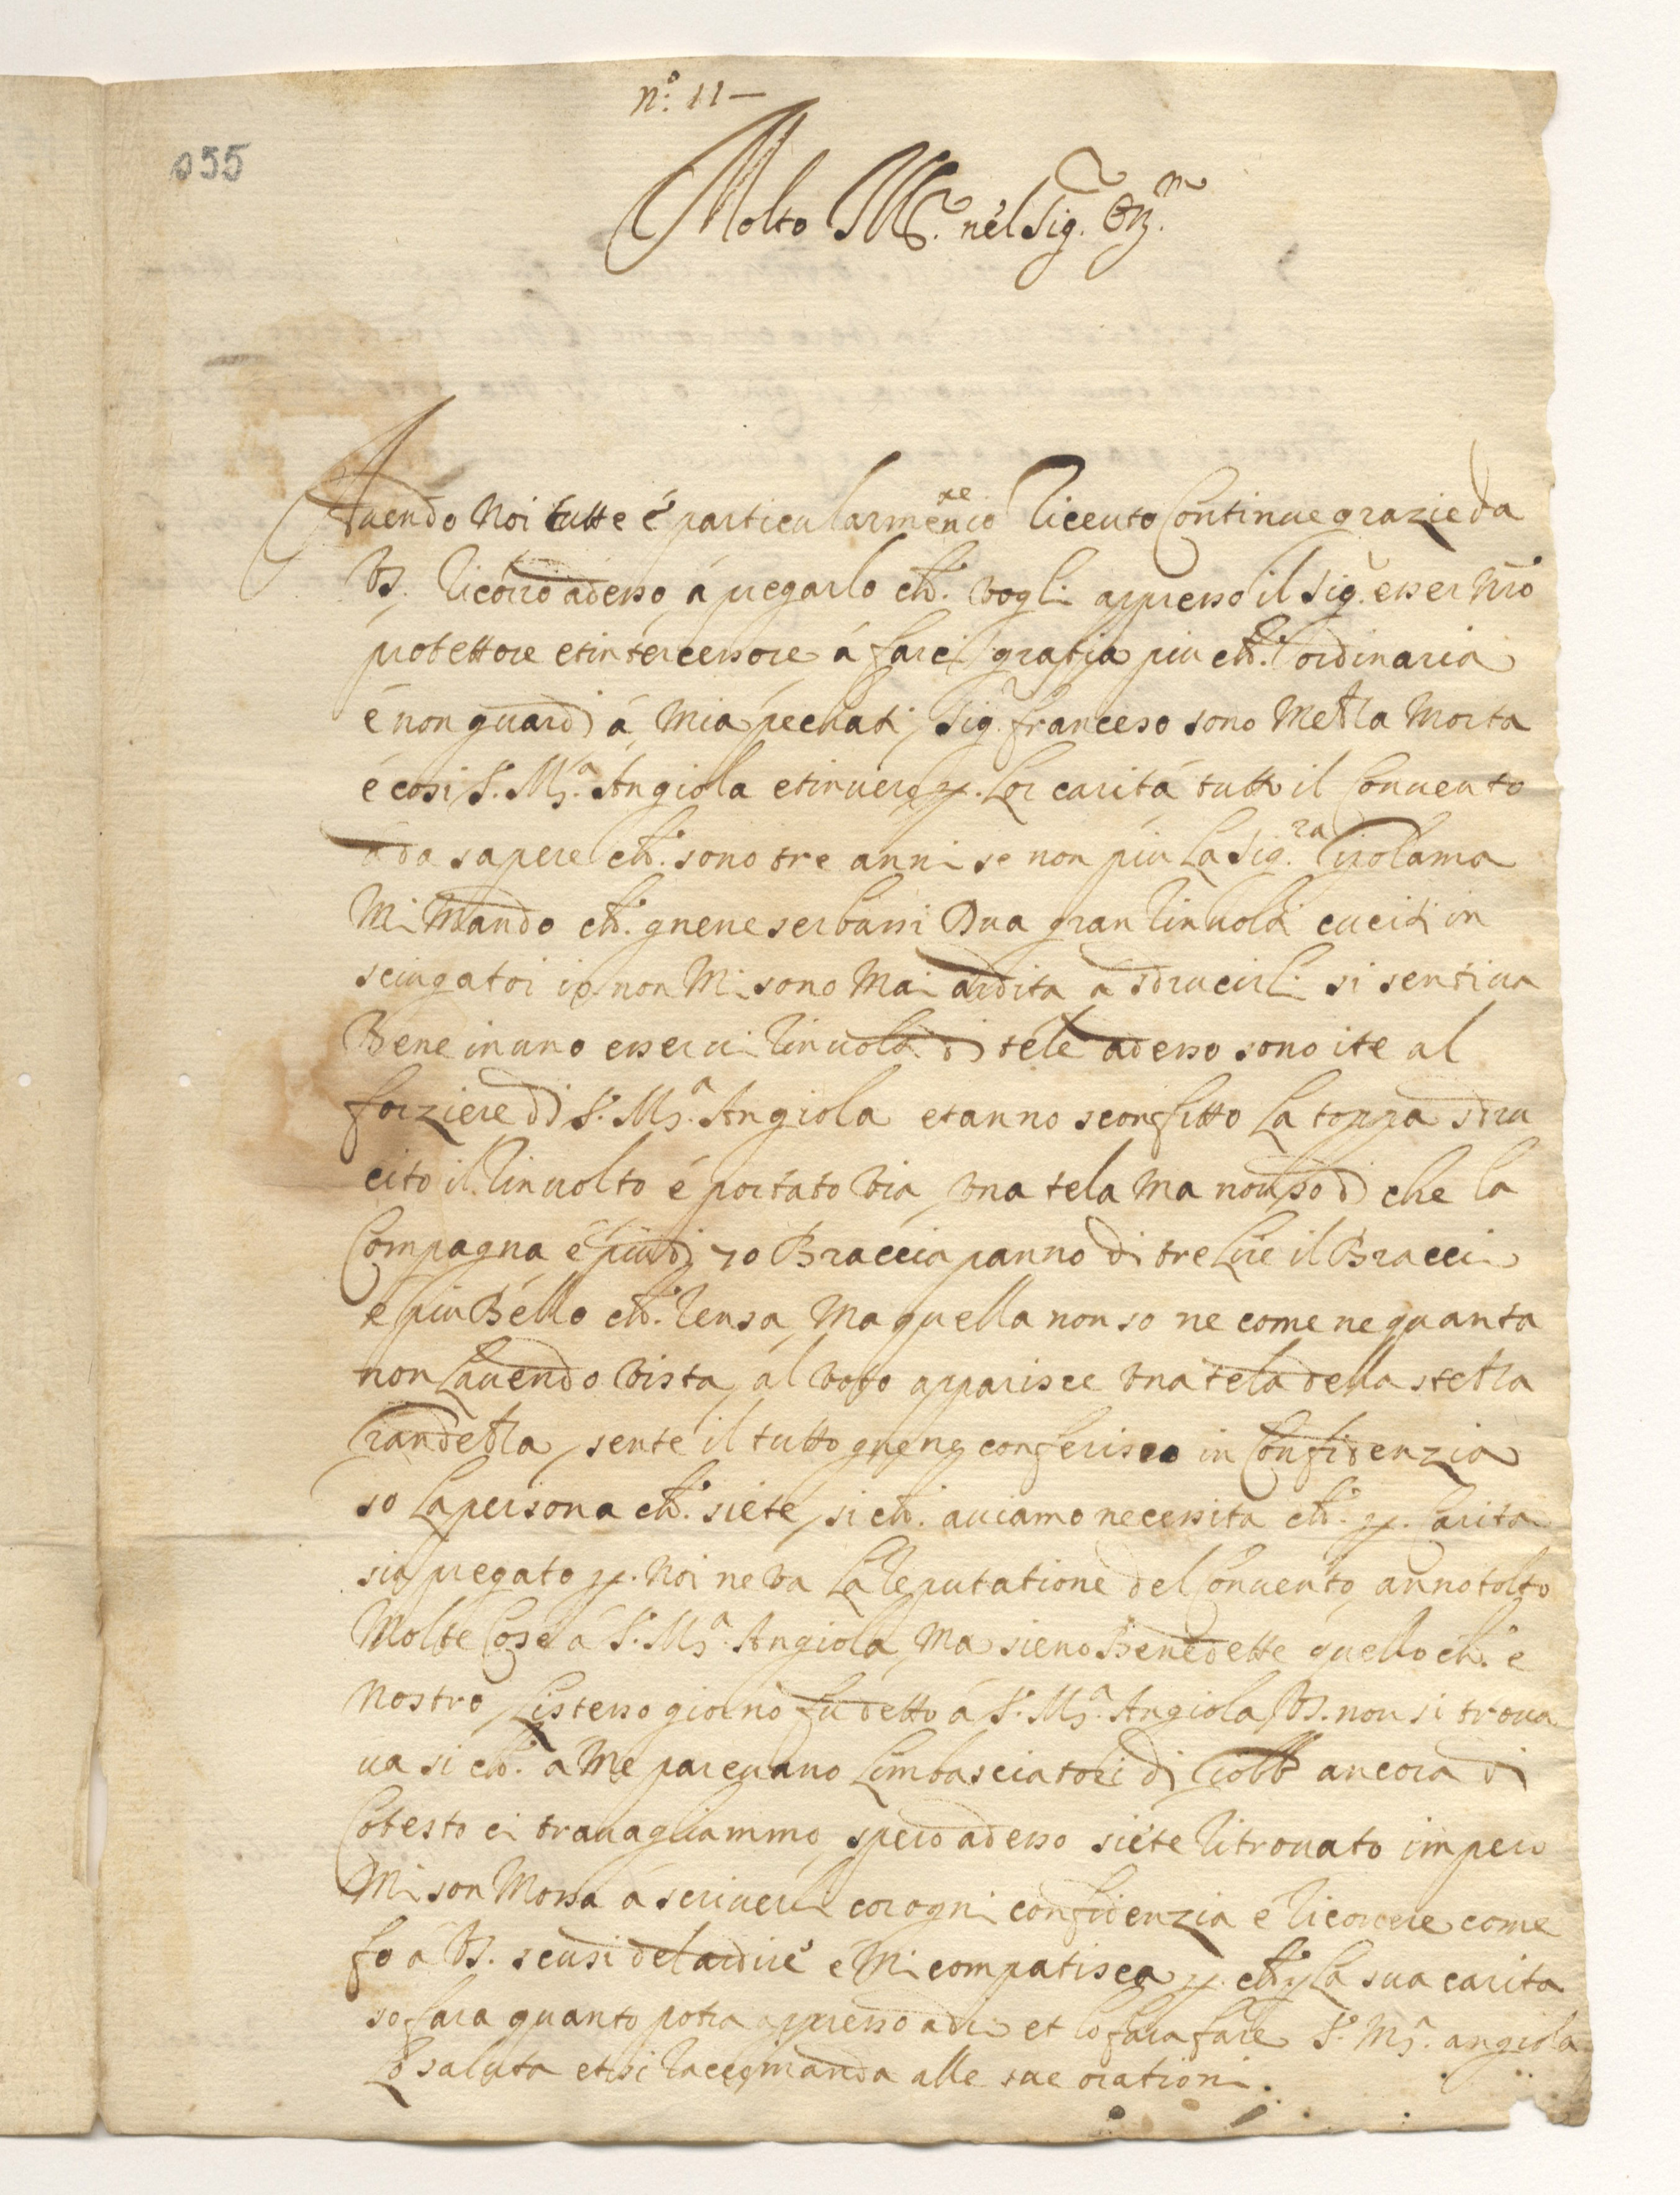 n.° 11 —
055
Molto M.^r nel Sig. Oss.^m
Auendo Noi tutte é particularmente io riceuto Continue grazie da
VS. ricorro adesso á pregarlo ch.' vogli appresso il Sig.^r esser Nro
protettore et intercessore á farci gratja piu ch.' l ordinaria
é non guardi á Mia pechati, Sig.^r francesco sono Meza Morta
é cosi S.^r M.^a Angiola et invero p. Lor caritá tutto il Conuento
á da sapere ch.' sono tre anni se non piu La Sig.^ra Girolama
Mi Mando ch.' gnene serbassi Dua gran rinvolti cuciti in
sciugatoi io non Mi sono Mai ardita a sdrucirli si sentiua
Bene in uno esserui rinuolti di tele adesso sono ite al
forziere di S.^r M.^a Angiola et anno sconfitto La toppa sdru
cito il rinuolto é portato via una tela Ma non so di che la
Compagna é piu di 70 Braccia panno di tre Lire il Bracci
e piu Bello ch.' rensa, Ma quella non so ne come ne quanta
non Lauendo vista, al voto apparisce una tela della stetza
Grandetza, sente il tutto gnene conferisco in Confidenzia
so La persona ch.' siete, si ch.' auiamo necessita ch.' p. Carita
sia pregato p. Noi ne va La reputatione del Conuento, anno tolto
Molte Cose á S.^r M.^a Angiola, Ma sieno Benedette quello ch.' é
Nostro, Listesso giorno fu detto á S.^r M.^a Angiola VS. non si troua
ua si ch.' a Me pareuano Limbasciatori di Giobb ancora di
Cotesto ci trauagliammo, spero adesso siete ritrouato impero
Mi son Mossa á scriuerli cor ogni confidenzia e ricorrere come
fo á VS. scusi del ardire é Mi compatisca p. ch.' La sua carita
so fara quanto potra appresso a dio et lo fara fare S.^r M.^a angiola
Lo saluta et si raccomanda alle sue orationi.